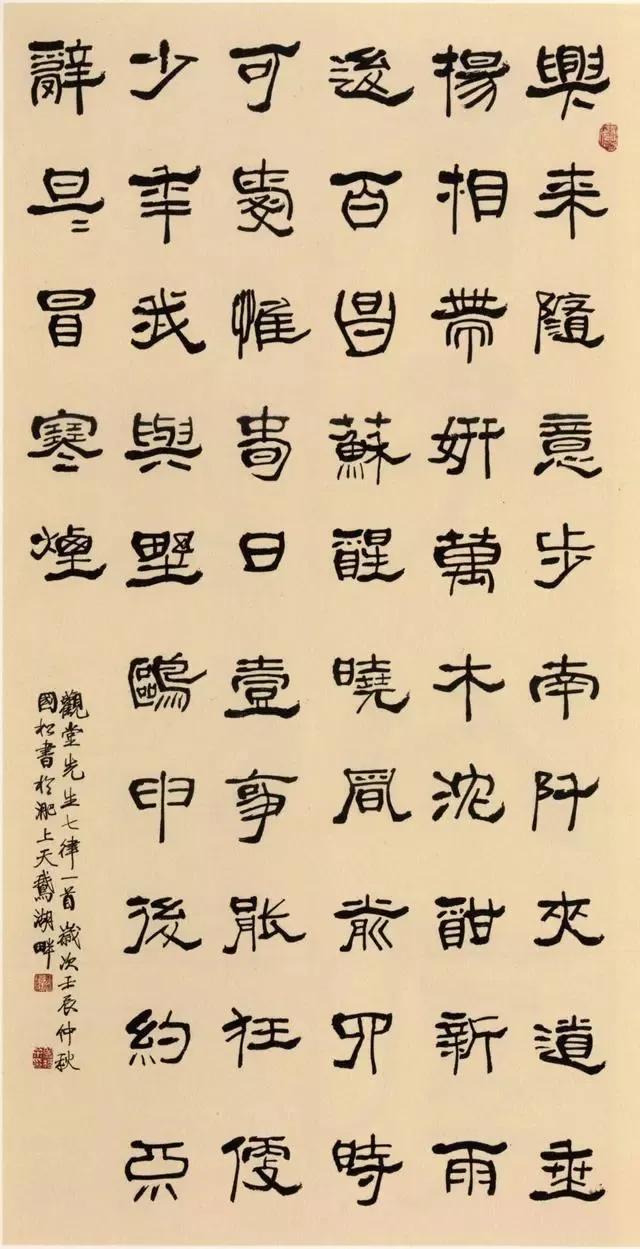 興來隨意步南阡夾道垂
揚相帶妍萬木沈酣新雨
後百昌蘇醒曉風前四時
可愛惟春日壹事能狂便
少年我與野鷗申後約不
辭旦〻冒寒煙
觀堂先生七律一首歲次壬辰仲秋
國松書於淝上天鵝湖畔